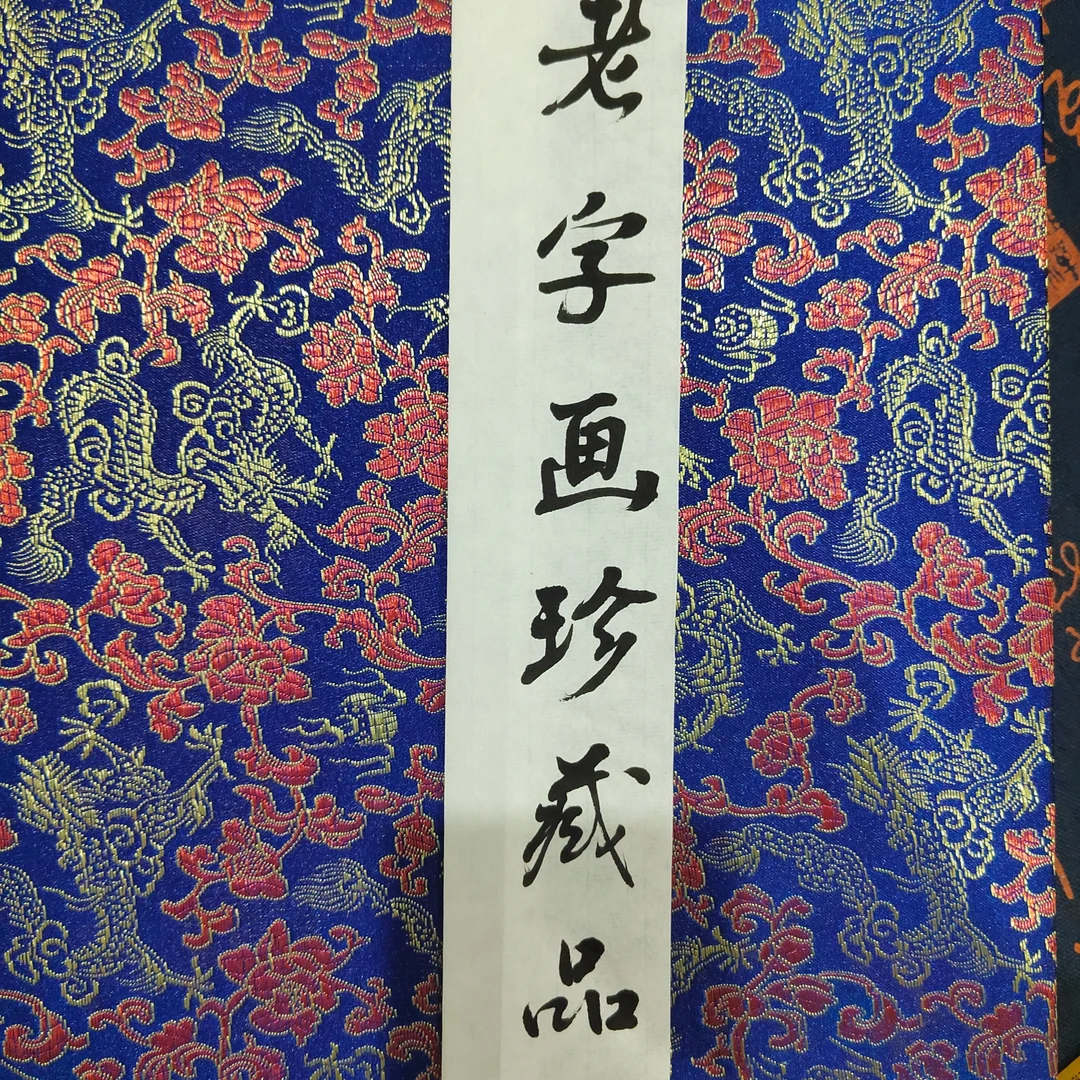 老字画珍藏品